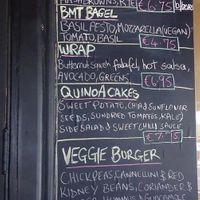 HASH BROWNS, RYE €6.75
BMT BAGEL
BASIL PESTO, MOZZARELLA (VEGAN)
TOMATO, BASIL €4.75
WRAP
Butternut squash falafel, hot salsa,
AVOCADO, GREENS €6.95
QUINOA CAKES
SWEET POTATO, CHIA & SUNFLOWER
SEEDS, SUNDRIED TOMATOES, KALE)
SIDE SALAD & SWEET CHILLI SAUCE
VEGGIE BURGER
CHICKPEAS, CANNELLINI & RED
KIDNEY BEANS, CORIANDER &
HUMMUS & GUACAMOLE